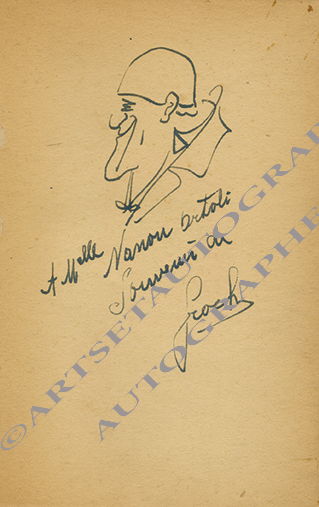 A Melle Nanon Ortoli
Souvenir de
Grock
©ARTSETAUTOGRAPHE
AUTOGRAPHE